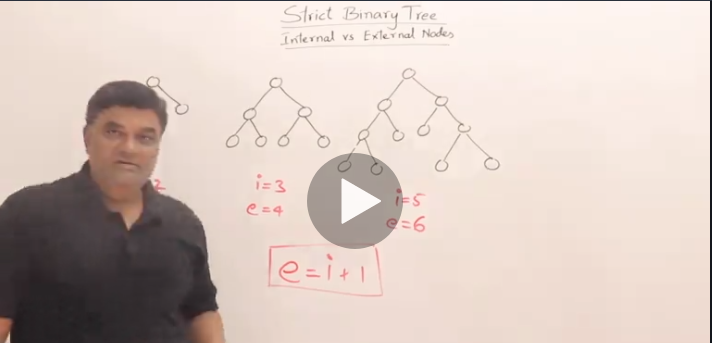 Strict Binary Tree
Internal vs External Nodes
2
i=3
e=4
i=5
e=6
e=i+1